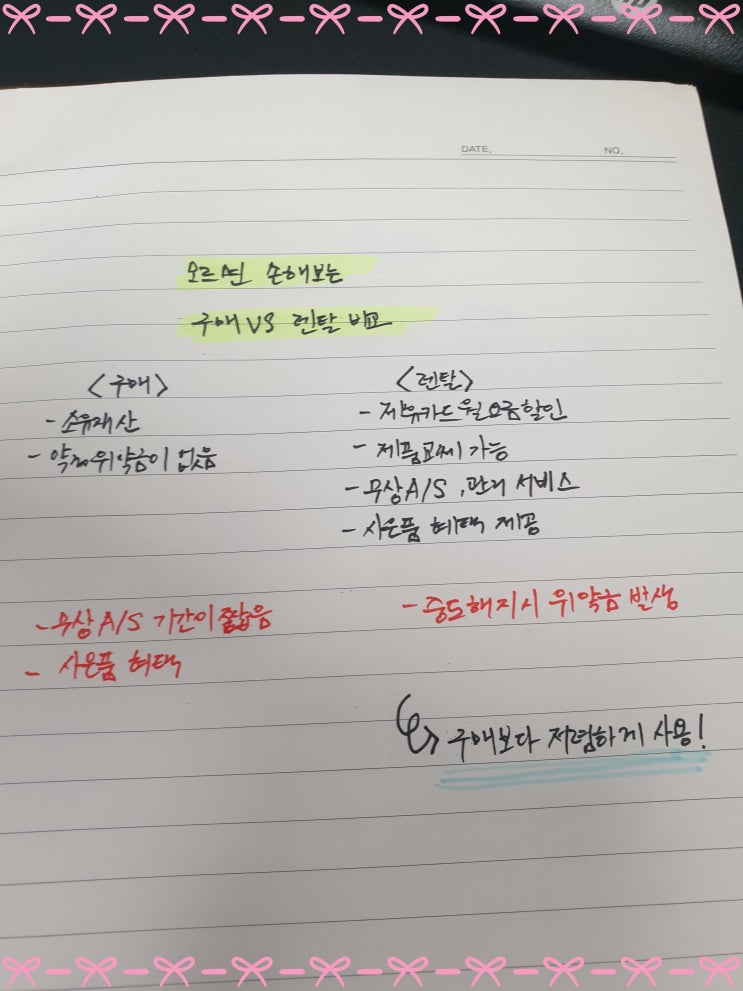 DATE.
NO.
모르면 손해보는
구매 VS 렌탈 비교
<구매>
- 소유재산
- 약정위약금이 없음
- 무상A/S 기간이 짧음
- 사은품 혜택
<렌탈>
- 제휴카드 월요금할인
- 제품교체 가능
- 무상A/S, 관리 서비스
- 사은품 혜택 제공
- 중도해지시 위약금 발생
구매보다 저렴하게 사용!